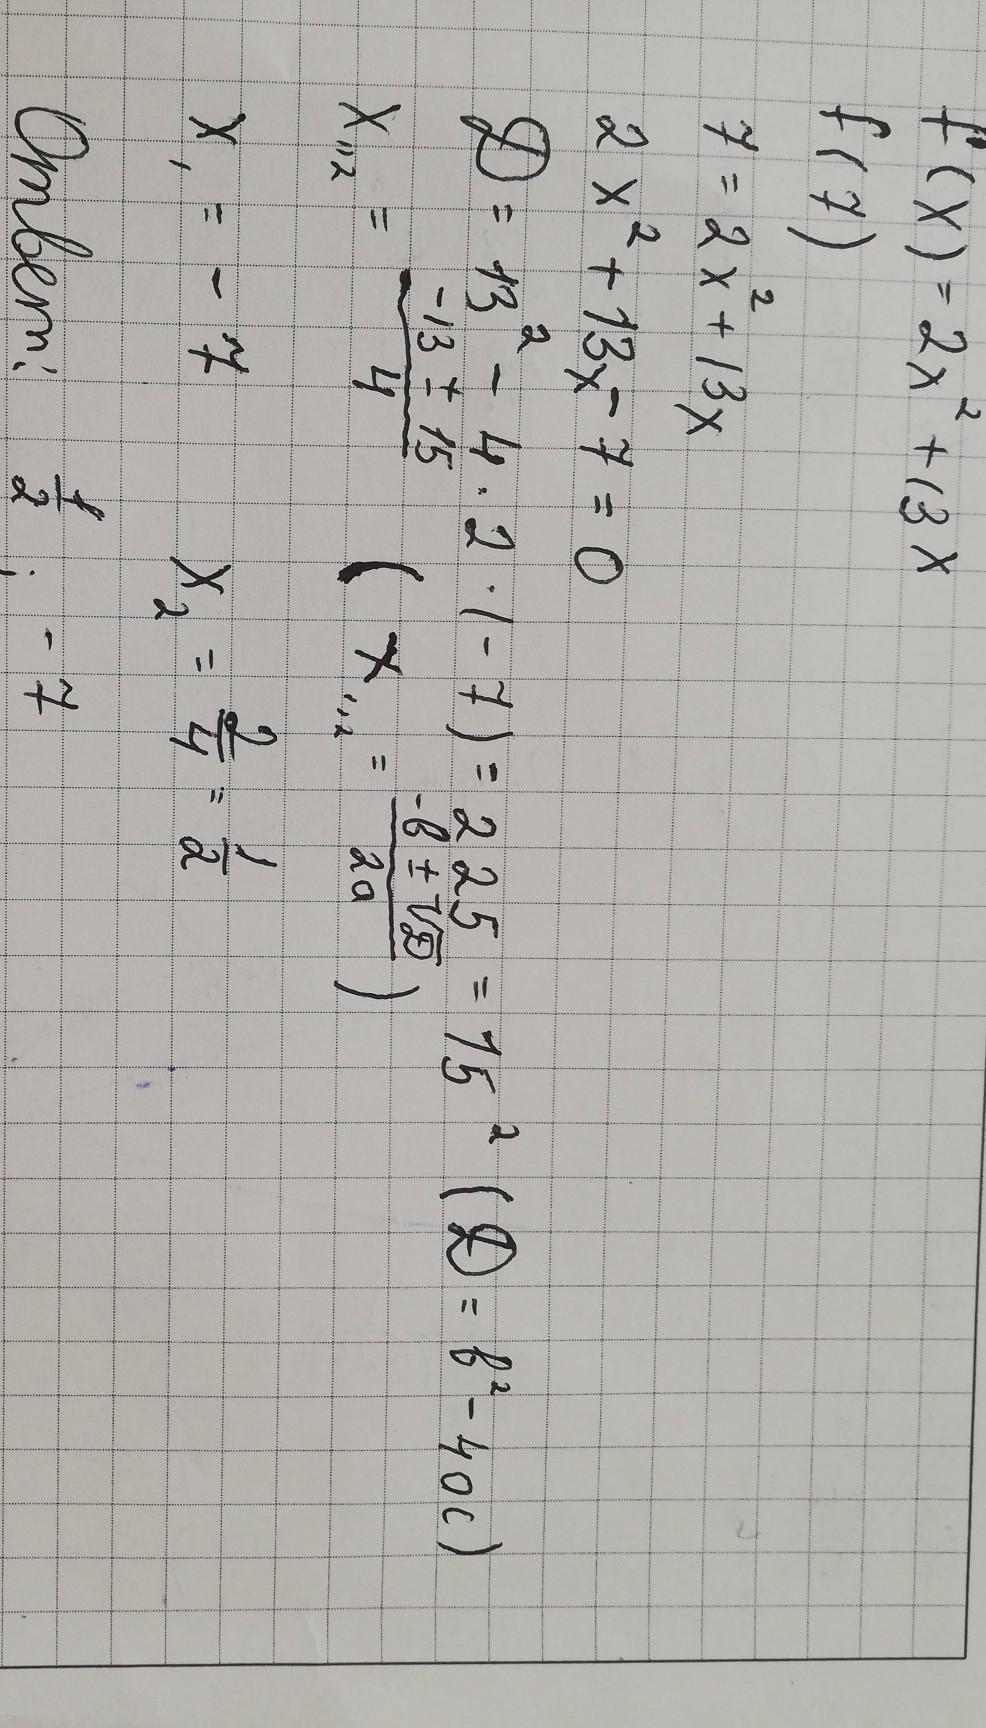 f(x) = 2x² + 13x
f(7)
7 = 2x² + 13x
2x² + 13x - 7 = 0
D = 13² - 4 · 2 · (-7) = 225 = 15² (D = b² - 4ac)
x₁,₂ = (-13 ± 15)/4 (x₁,₂ = (-b ± √D)/2a)
x₁ = -7 x₂ = 2/4 = 1/2
Ответ: 1/2 ; -7